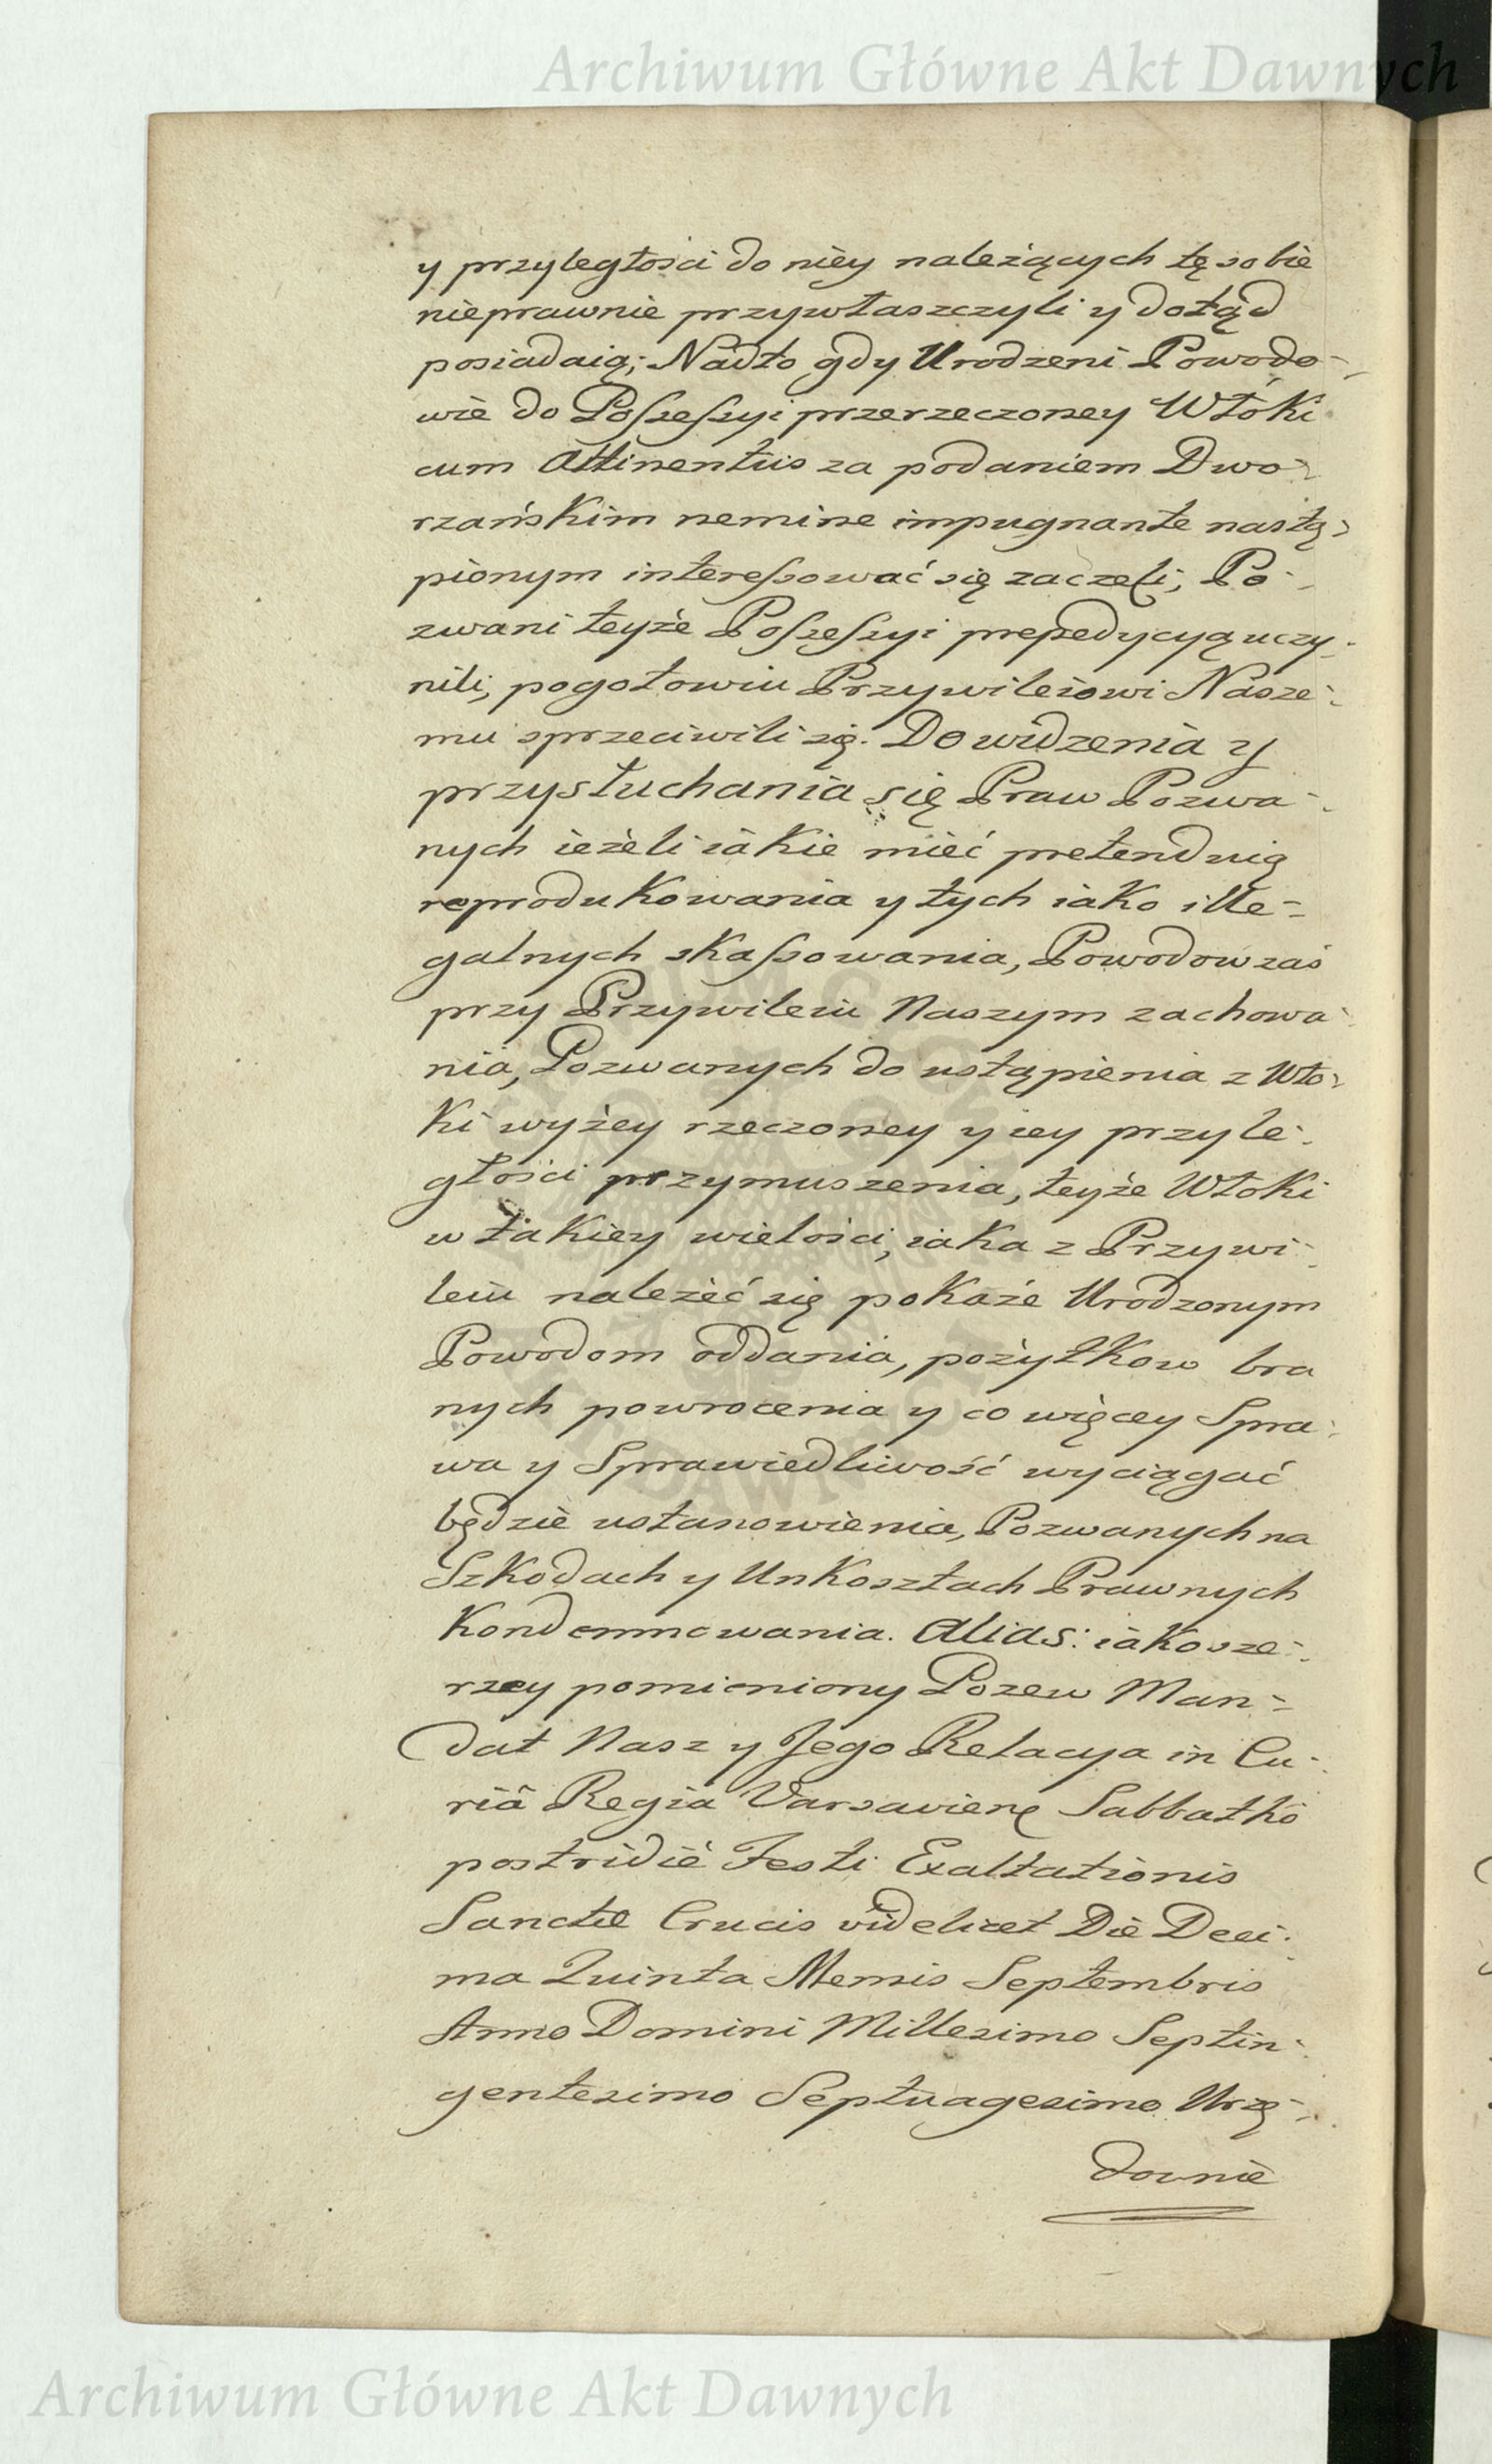 Archiwum Główne Akt Dawnych
y przyległości do niey należących tę sobie
nieprawnie przywłaszczyli y dotąd
posiadaią; Nadto gdy Urodzeni Powodo-
wie do Possessyi przerzeczoney Włóki
cum Attinentiis za podaniem Dwo-
rzańskim nemine impugnante nastą-
pionym interessować się zaczeli; Po-
zwani teyże Possessyi prepedycyą uczy-
nili, pogotowiu Przywileiowi Nasze-
mu sprzeciwili się. Do widzenia y
przysłuchania się Praw Pozwa-
nych ieżeli iakie mieć pretenduią
reprodukowania y tych iako ille-
galnych skassowania, Powodow zaś
przy Przywileiu Naszym zachowa-
nia, Pozwanych do ustąpienia z Wło-
ki wyżey rzeczoney y iey przyle-
głości przymuszenia, teyże Włoki
w takiey wielości, iaka z Przywi-
leiu należeć się pokaże Urodzonym
Powodom oddania, pożytkow bra
nych powrocenia y co więcey Spra-
wa y Sprawiedliwość wyciągać
będzie ustanowienia, Pozwanych na
Szkodach y Unkosztach Prawnych
Kondemnowania. Alias: iako sze-
rzey pomieniony Pozew Man-
dat Nasz y Jego Relacya in Cu-
riâ Regia Varsaviene Sabbatho
postridie Festi Exaltationis
Sanctæ Crucis videlicet Die Deci-
ma Quinta Mensis Septembris
Anno Domini Millesimo Septin-
gentesimo Septuagesimo Urzę-
downie
Archiwum Główne Akt Dawnych